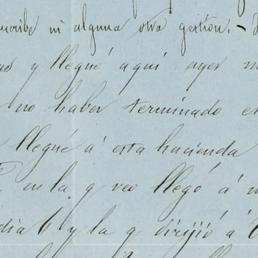 scribe ni alguna otra gestion. -
y llegué aquí ayer
no haber terminado e
llegué á esta hacienda
en la q veo llegó á
dia 6 y la q dirijió á